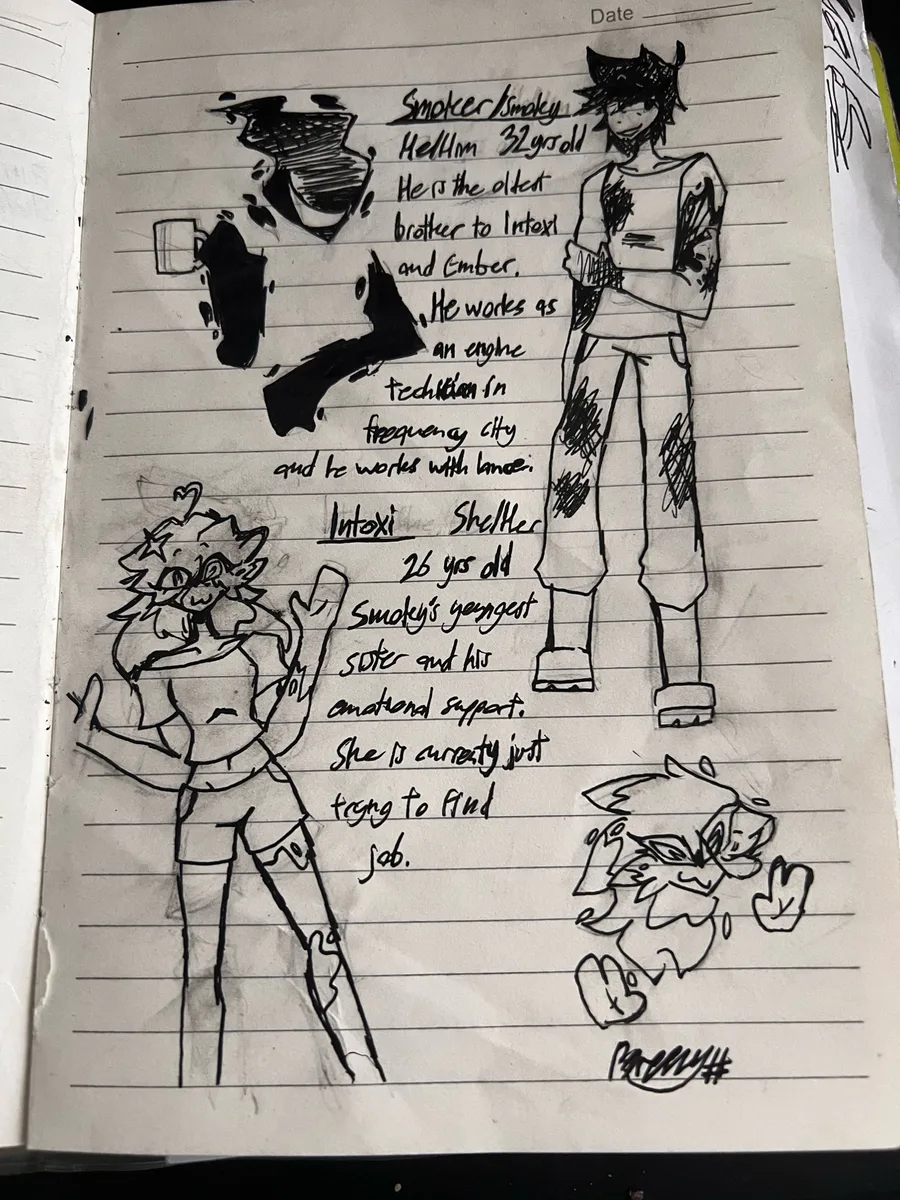 Date
Smoker/Smoky
He/Him 32 yrs old
He is the oldest
brother to Intoxi
and Ember.
He works as
an engine
in
frequency city
and he works with
Intoxi She/Her
26 yrs old
Smoky's youngest
sister and his
emotional support.
She is currenty just
tryng to find
job.